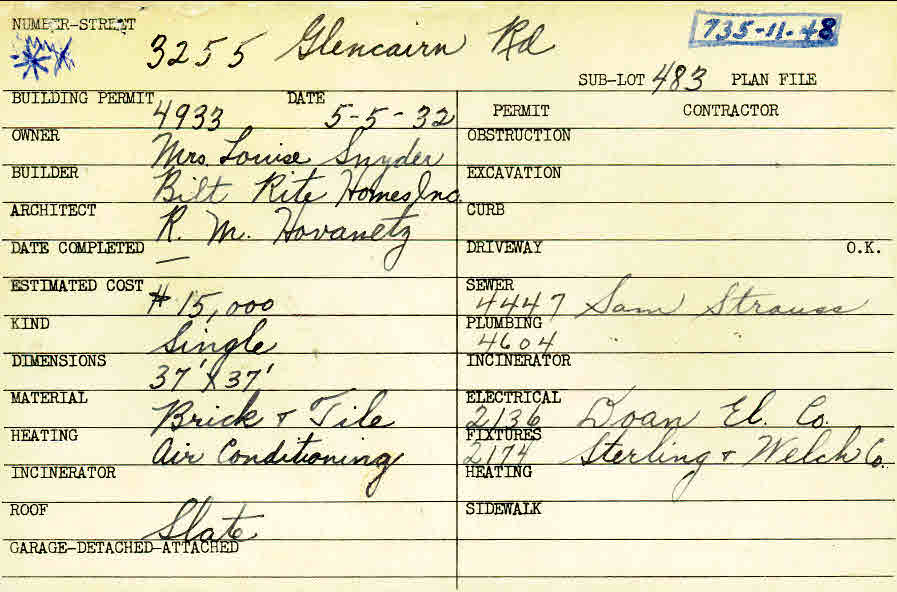 NUMBER-STREET 3255 Glencairn Rd 735-11-48
SUB-LOT 483 PLAN FILE
BUILDING PERMIT 4933 DATE 5-5-32
OWNER Mrs. Louise Snyder
BUILDER Bilt Rite Homes Inc.
ARCHITECT R. M. Hovanetz
DATE COMPLETED —
ESTIMATED COST $15,000
KIND Single
DIMENSIONS 37' x 37'
MATERIAL Brick + Tile
HEATING Air Conditioning
INCINERATOR
ROOF Slate
GARAGE-DETACHED-ATTACHED
PERMIT CONTRACTOR
OBSTRUCTION
EXCAVATION
CURB
DRIVEWAY O.K.
SEWER 4447 Sam Strauss
PLUMBING 4604
INCINERATOR
ELECTRICAL 2136 Doan El. Co.
FIXTURES 2174 Sterling + Welch Co.
HEATING
SIDEWALK